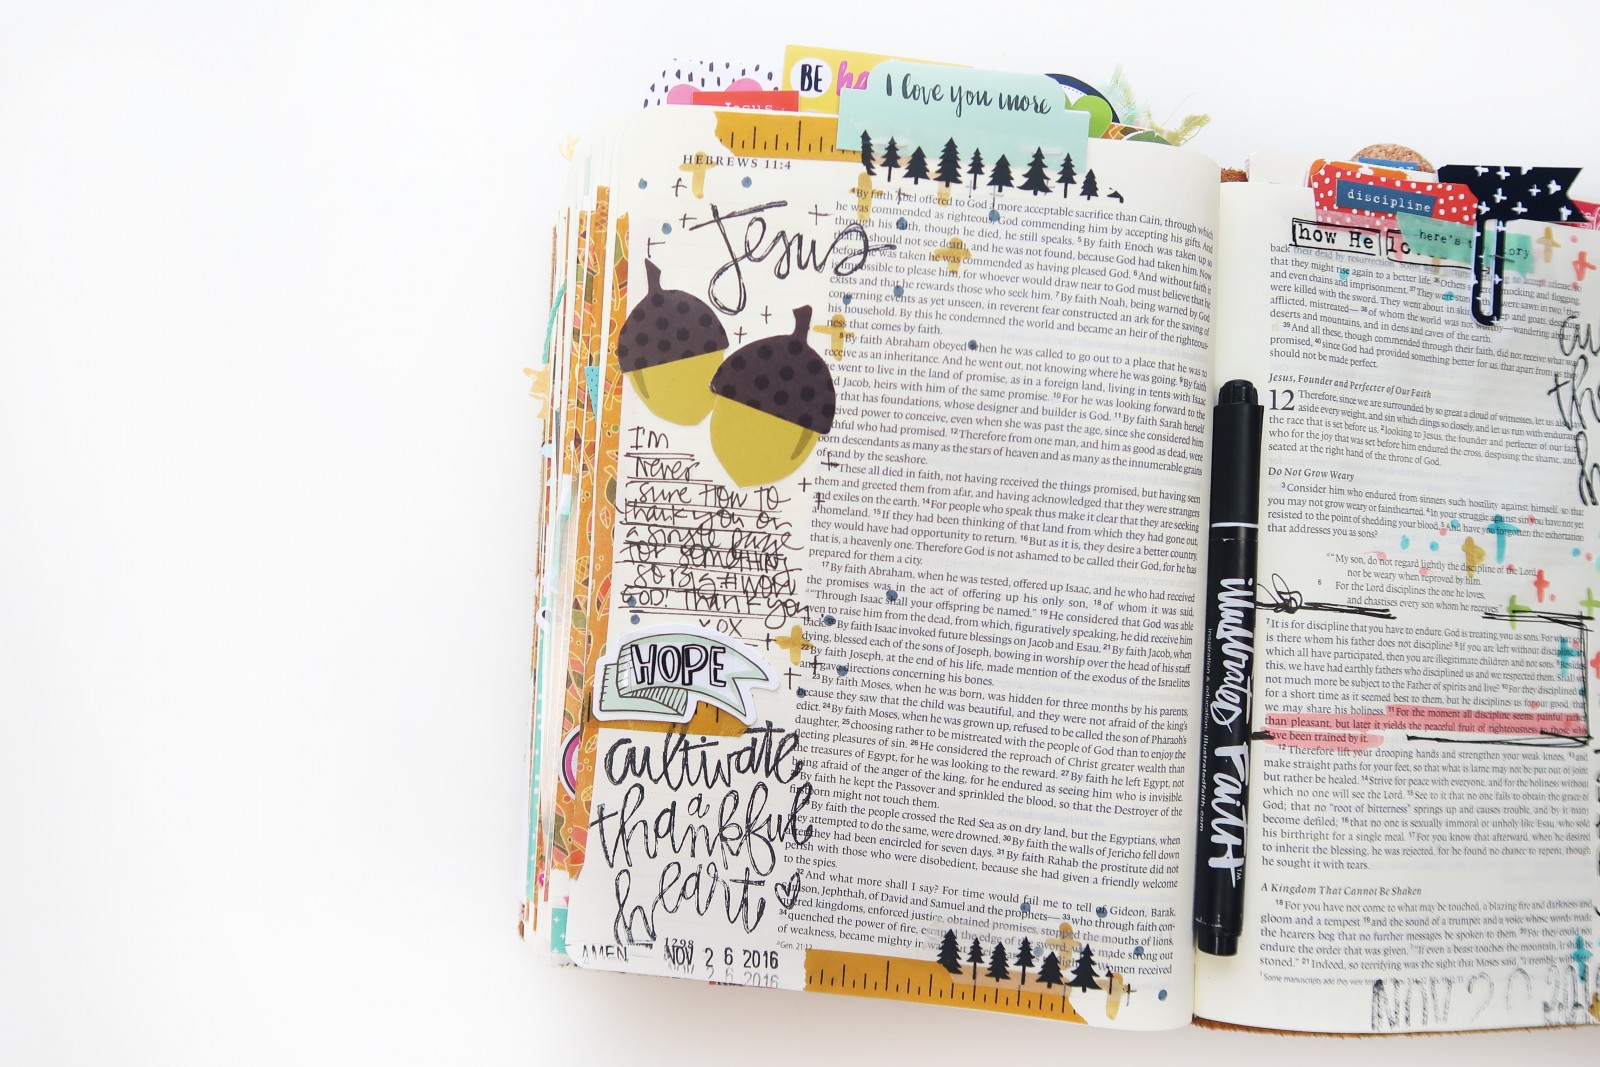 BE
Jesus
I love you more
HEBREWS 11:4
Jesus
I'm
never
sure how to
thank you on
a single page
for something
so big #word
God. Thank you
xox
HOPE
cultivate
a
thankful
heart
AMEN
NOV 2 6 2016
NOV 2 6 2016
4 By faith Abel offered to God a more acceptable sacrifice than Cain, through which
he was commended as righteous, God commending him by accepting his gifts. And
through his faith, though he died, he still speaks. 5 By faith Enoch was taken up so
that he should not see death, and he was not found, because God had taken him. Now
before he was taken he was commended as having pleased God. 6 And without faith it
is impossible to please him, for whoever would draw near to God must believe that he
exists and that he rewards those who seek him. 7 By faith Noah, being warned by God
concerning events as yet unseen, in reverent fear constructed an ark for the saving of
his household. By this he condemned the world and became an heir of the righteous-
ness that comes by faith.
8 By faith Abraham obeyed when he was called to go out to a place that he was to
receive as an inheritance. And he went out, not knowing where he was going. 9 By faith
he went to live in the land of promise, as in a foreign land, living in tents with Isaac
and Jacob, heirs with him of the same promise. 10 For he was looking forward to the
city that has foundations, whose designer and builder is God. 11 By faith Sarah herself
received power to conceive, even when she was past the age, since she considered him
faithful who had promised. 12 Therefore from one man, and him as good as dead, were
born descendants as many as the stars of heaven and as many as the innumerable grains
of sand by the seashore.
13 These all died in faith, not having received the things promised, but having seen
them and greeted them from afar, and having acknowledged that they were strangers
and exiles on the earth. 14 For people who speak thus make it clear that they are seeking
a homeland. 15 If they had been thinking of that land from which they had gone out,
they would have had opportunity to return. 16 But as it is, they desire a better country,
that is, a heavenly one. Therefore God is not ashamed to be called their God, for he has
prepared for them a city.
17 By faith Abraham, when he was tested, offered up Isaac, and he who had received
the promises was in the act of offering up his only son, 18 of whom it was said,
"Through Isaac shall your offspring be named." 19 He considered that God was able
even to raise him from the dead, from which, figuratively speaking, he did receive him
back. 20 By faith Isaac invoked future blessings on Jacob and Esau. 21 By faith Jacob, when
dying, blessed each of the sons of Joseph, bowing in worship over the head of his staff.
22 By faith Joseph, at the end of his life, made mention of the exodus of the Israelites
and gave directions concerning his bones.
23 By faith Moses, when he was born, was hidden for three months by his parents,
because they saw that the child was beautiful, and they were not afraid of the king's
edict. 24 By faith Moses, when he was grown up, refused to be called the son of Pharaoh's
daughter, 25 choosing rather to be mistreated with the people of God than to enjoy the
fleeting pleasures of sin. 26 He considered the reproach of Christ greater wealth than
the treasures of Egypt, for he was looking to the reward. 27 By faith he left Egypt, not
being afraid of the anger of the king, for he endured as seeing him who is invisible.
28 By faith he kept the Passover and sprinkled the blood, so that the Destroyer of the
firstborn might not touch them.
29 By faith the people crossed the Red Sea as on dry land, but the Egyptians, when
they attempted to do the same, were drowned. 30 By faith the walls of Jericho fell down
after they had been encircled for seven days. 31 By faith Rahab the prostitute did not
perish with those who were disobedient, because she had given a friendly welcome
to the spies.
32 And what more shall I say? For time would fail me to tell of Gideon, Barak,
Samson, Jephthah, of David and Samuel and the prophets— 33 who through faith con-
quered kingdoms, enforced justice, obtained promises, stopped the mouths of lions,
34 quenched the power of fire, escaped the edge of the sword, were made strong out
of weakness, became mighty in
Women received
Gen. 21:12
illustrated FAITH
inspiration & education: illustratedfaith.com
discipline
how He
here's
back their dead by resurrection.
that they might rise again to a better life. 36 Others mocking and flogging,
and even chains and imprisonment. 37 They were
were killed with the sword. They went about in and goats, destitute,
afflicted, mistreated— 38 of whom the world was not worthy—wandering about
deserts and mountains, and in dens and caves of the earth.
39 And all these, though commended through their faith, did not receive what was
promised, 40 since God had provided something better for us, that apart from us they
should not be made perfect.
Jesus, Founder and Perfecter of Our Faith
12 Therefore, since we are surrounded by so great a cloud of witnesses, let us also lay
aside every weight, and sin which clings so closely, and let us run with endurance
the race that is set before us, 2 looking to Jesus, the founder and perfecter of our faith,
who for the joy that was set before him endured the cross, despising the shame, and is
seated at the right hand of the throne of God.
Do Not Grow Weary
3 Consider him who endured from sinners such hostility against himself, so that
you may not grow weary or fainthearted. 4 In your struggle against sin you have not yet
resisted to the point of shedding your blood. 5 And have you forgotten the exhortation
that addresses you as sons?
"My son, do not regard lightly the discipline of the Lord,
nor be weary when reproved by him.
6 For the Lord disciplines the one he loves,
and chastises every son whom he receives."
7 It is for discipline that you have to endure. God is treating you as sons. For what son
is there whom his father does not discipline? 8 If you are left without discipline, in
which all have participated, then you are illegitimate children and not sons. 9 Besides
this, we have had earthly fathers who disciplined us and we respected them. Shall we
not much more be subject to the Father of spirits and live? 10 For they disciplined us
for a short time as it seemed best to them, but he disciplines us for our good, that
we may share his holiness. 11 For the moment all discipline seems painful rather
than pleasant, but later it yields the peaceful fruit of righteousness to those who
have been trained by it.
12 Therefore lift your drooping hands and strengthen your weak knees, 13 and
make straight paths for your feet, so that what is lame may not be put out of joint
but rather be healed. 14 Strive for peace with everyone, and for the holiness without
which no one will see the Lord. 15 See to it that no one fails to obtain the grace of
God; that no "root of bitterness" springs up and causes trouble, and by it many
become defiled; 16 that no one is sexually immoral or unholy like Esau, who sold
his birthright for a single meal. 17 For you know that afterward, when he desired
to inherit the blessing, he was rejected, for he found no chance to repent, though
he sought it with tears.
A Kingdom That Cannot Be Shaken
18 For you have not come to what may be touched, a blazing fire and darkness and
gloom and a tempest 19 and the sound of a trumpet and a voice whose words made
the hearers beg that no further messages be spoken to them. 20 For they could not
endure the order that was given, "If even a beast touches the mountain, it shall be
stoned." 21 Indeed, so terrifying was the sight that Moses said, "I tremble with
Some manuscripts add they were
NOV 2